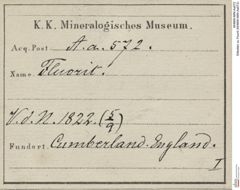 K. K. Mineralogisches Museum.
Acq. Post A. a. 572.
Name Fluorit.
V. d. N. 1822. (5/9)
Fundort Cumberland. England.
I